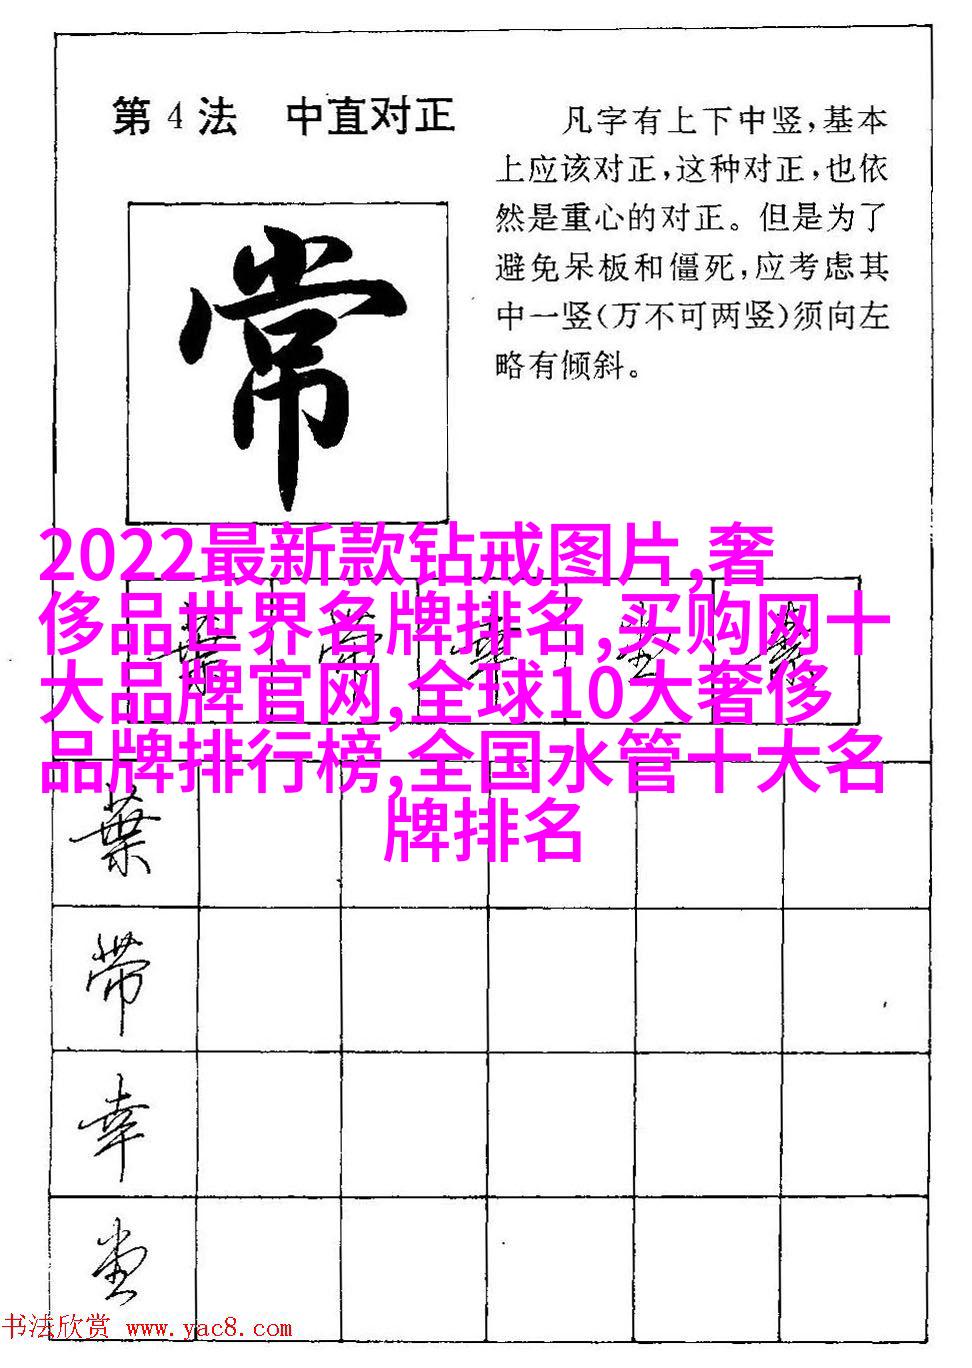 第4法 中直对正
凡字有上下中竖,基本
上应该对正,这种对正,也依
然是重心的对正。但是为了
避免呆板和僵死,应考虑其
中一竖(万不可两竖)须向左
略有倾斜。
常
2022最新款钻戒图片,奢
侈品世界名牌排名,买购网十
大品牌官网,全球10大奢侈
品牌排行榜,全国水管十大名
牌排名
葉
带
幸
书法欣赏 www.yac8.com